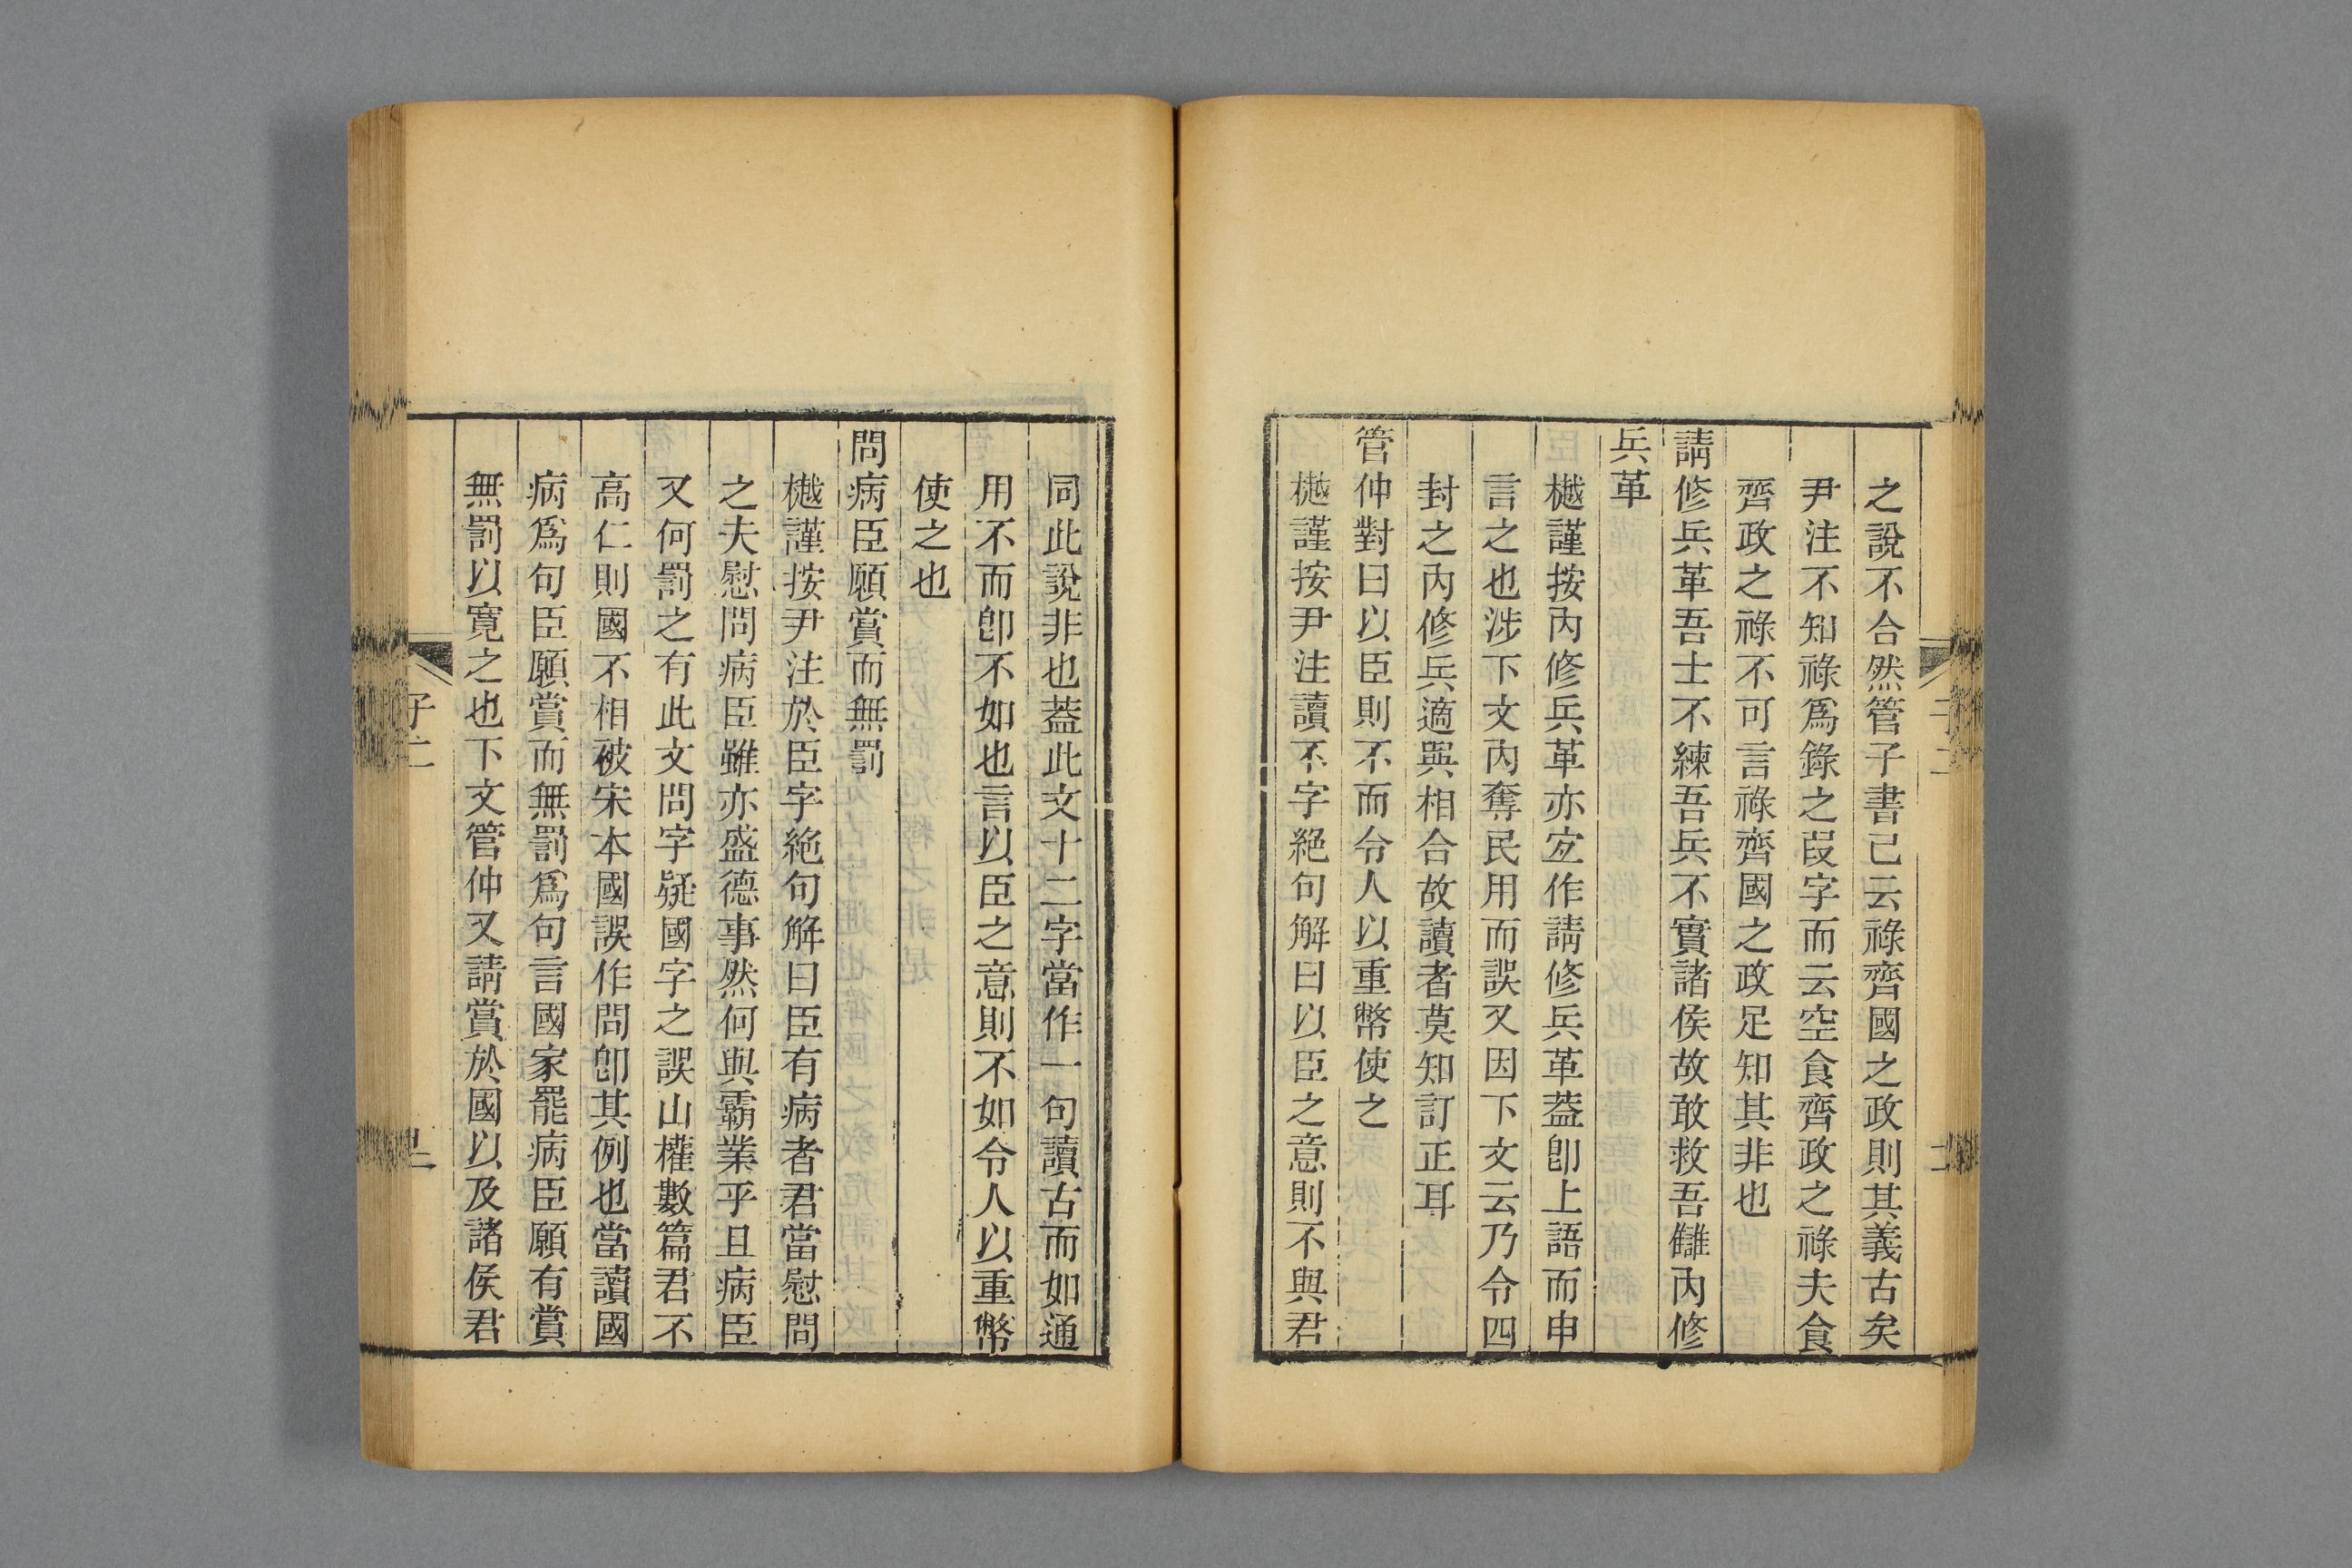 之說不合然管子書已云祿齊國之政則其義古矣
尹注不知祿爲錄之叚字而云空食齊政之祿夫食
齊政之祿不可言祿齊國之政足知其非也
請修兵革吾士不練吾兵不實諸侯故敢救吾讎內修
兵革
樾謹按內修兵革亦宐作請修兵革葢卽上語而申
言之也涉下文內奪民用而誤又因下文云乃令四
封之內修兵適與相合故讀者莫知訂正耳
管仲對曰以臣則不而令人以重幣使之
樾謹按尹注讀不字絕句解曰以臣之意則不與君
同此說非也葢此文十二字當作一句讀古而如通
用不而卽不如也言以臣之意則不如令人以重幣
使之也
問病臣願賞而無罰
樾謹按尹注於臣字絕句解曰臣有病者君當慰問
之夫慰問病臣雖亦盛德事然何與霸業乎且病臣
又何罰之有此文問字疑國字之誤山權數篇君不
高仁則國不相被宋本國誤作問卽其例也當讀國
病爲句臣願賞而無罰爲句言國家罷病臣願有賞
無罰以寛之也下文管仲又請賞於國以及諸侯君
子二